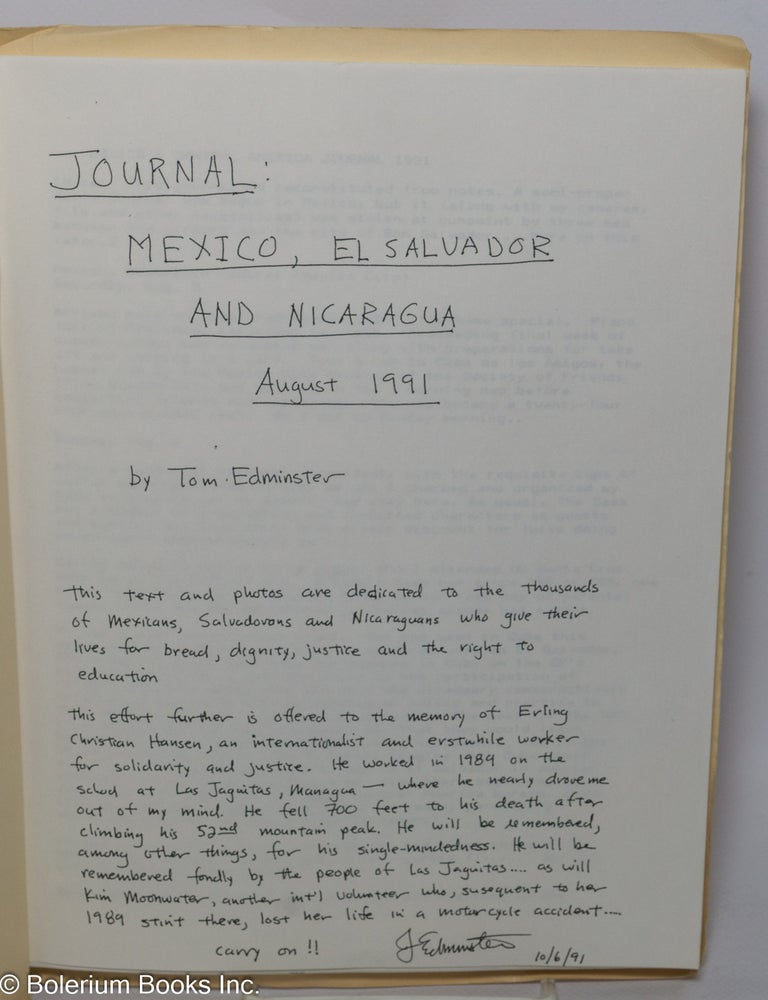 JOURNAL:
MEXICO, EL SALVADOR
AND NICARAGUA
August 1991
by Tom Edminster
This text and photos are dedicated to the thousands
of Mexicans, Salvadorans and Nicaraguans who give their
lives for bread, dignity, justice and the right to
education
This effort further is offered to the memory of Erling
Christian Hansen, an internationalist and erstwhile worker
for solidarity and justice. He worked in 1989 on the
school at Las Jaguitas, Managua — where he nearly drove me
out of my mind. He fell 700 feet to his death after
climbing his 52nd mountain peak. He will be remembered,
among other things, for his single-mindedness. He will be
remembered fondly by the people of Las Jaguitas.... as will
Kim Moonwater, another int'l volunteer who, susequent to her
1989 stint there, lost her life in a motorcycle accident....
carry on !! T Edminster 10/6/91
© Bolerium Books Inc.